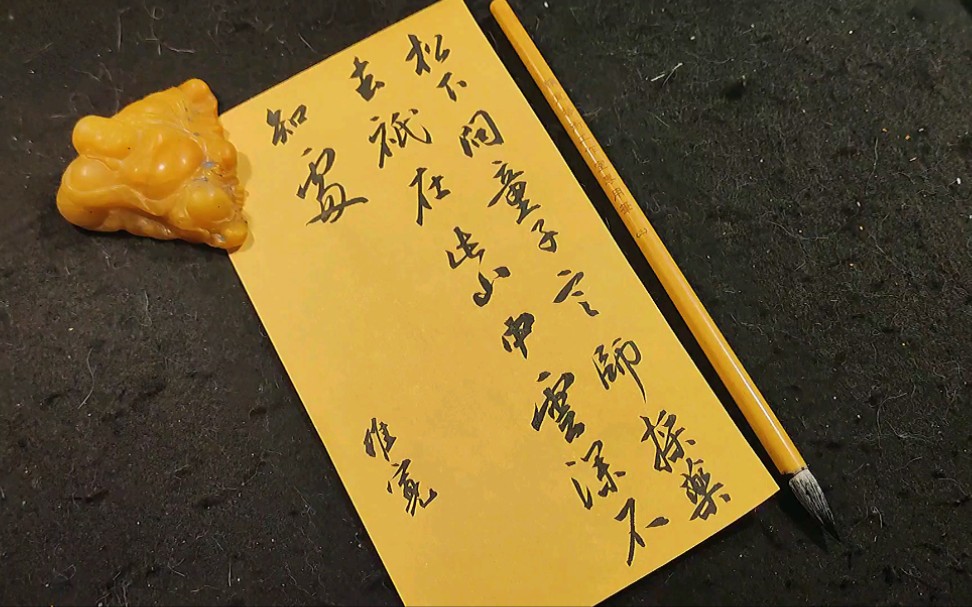 松下問童子言師採藥
去祇在此山中雲深不
知處
惟寬